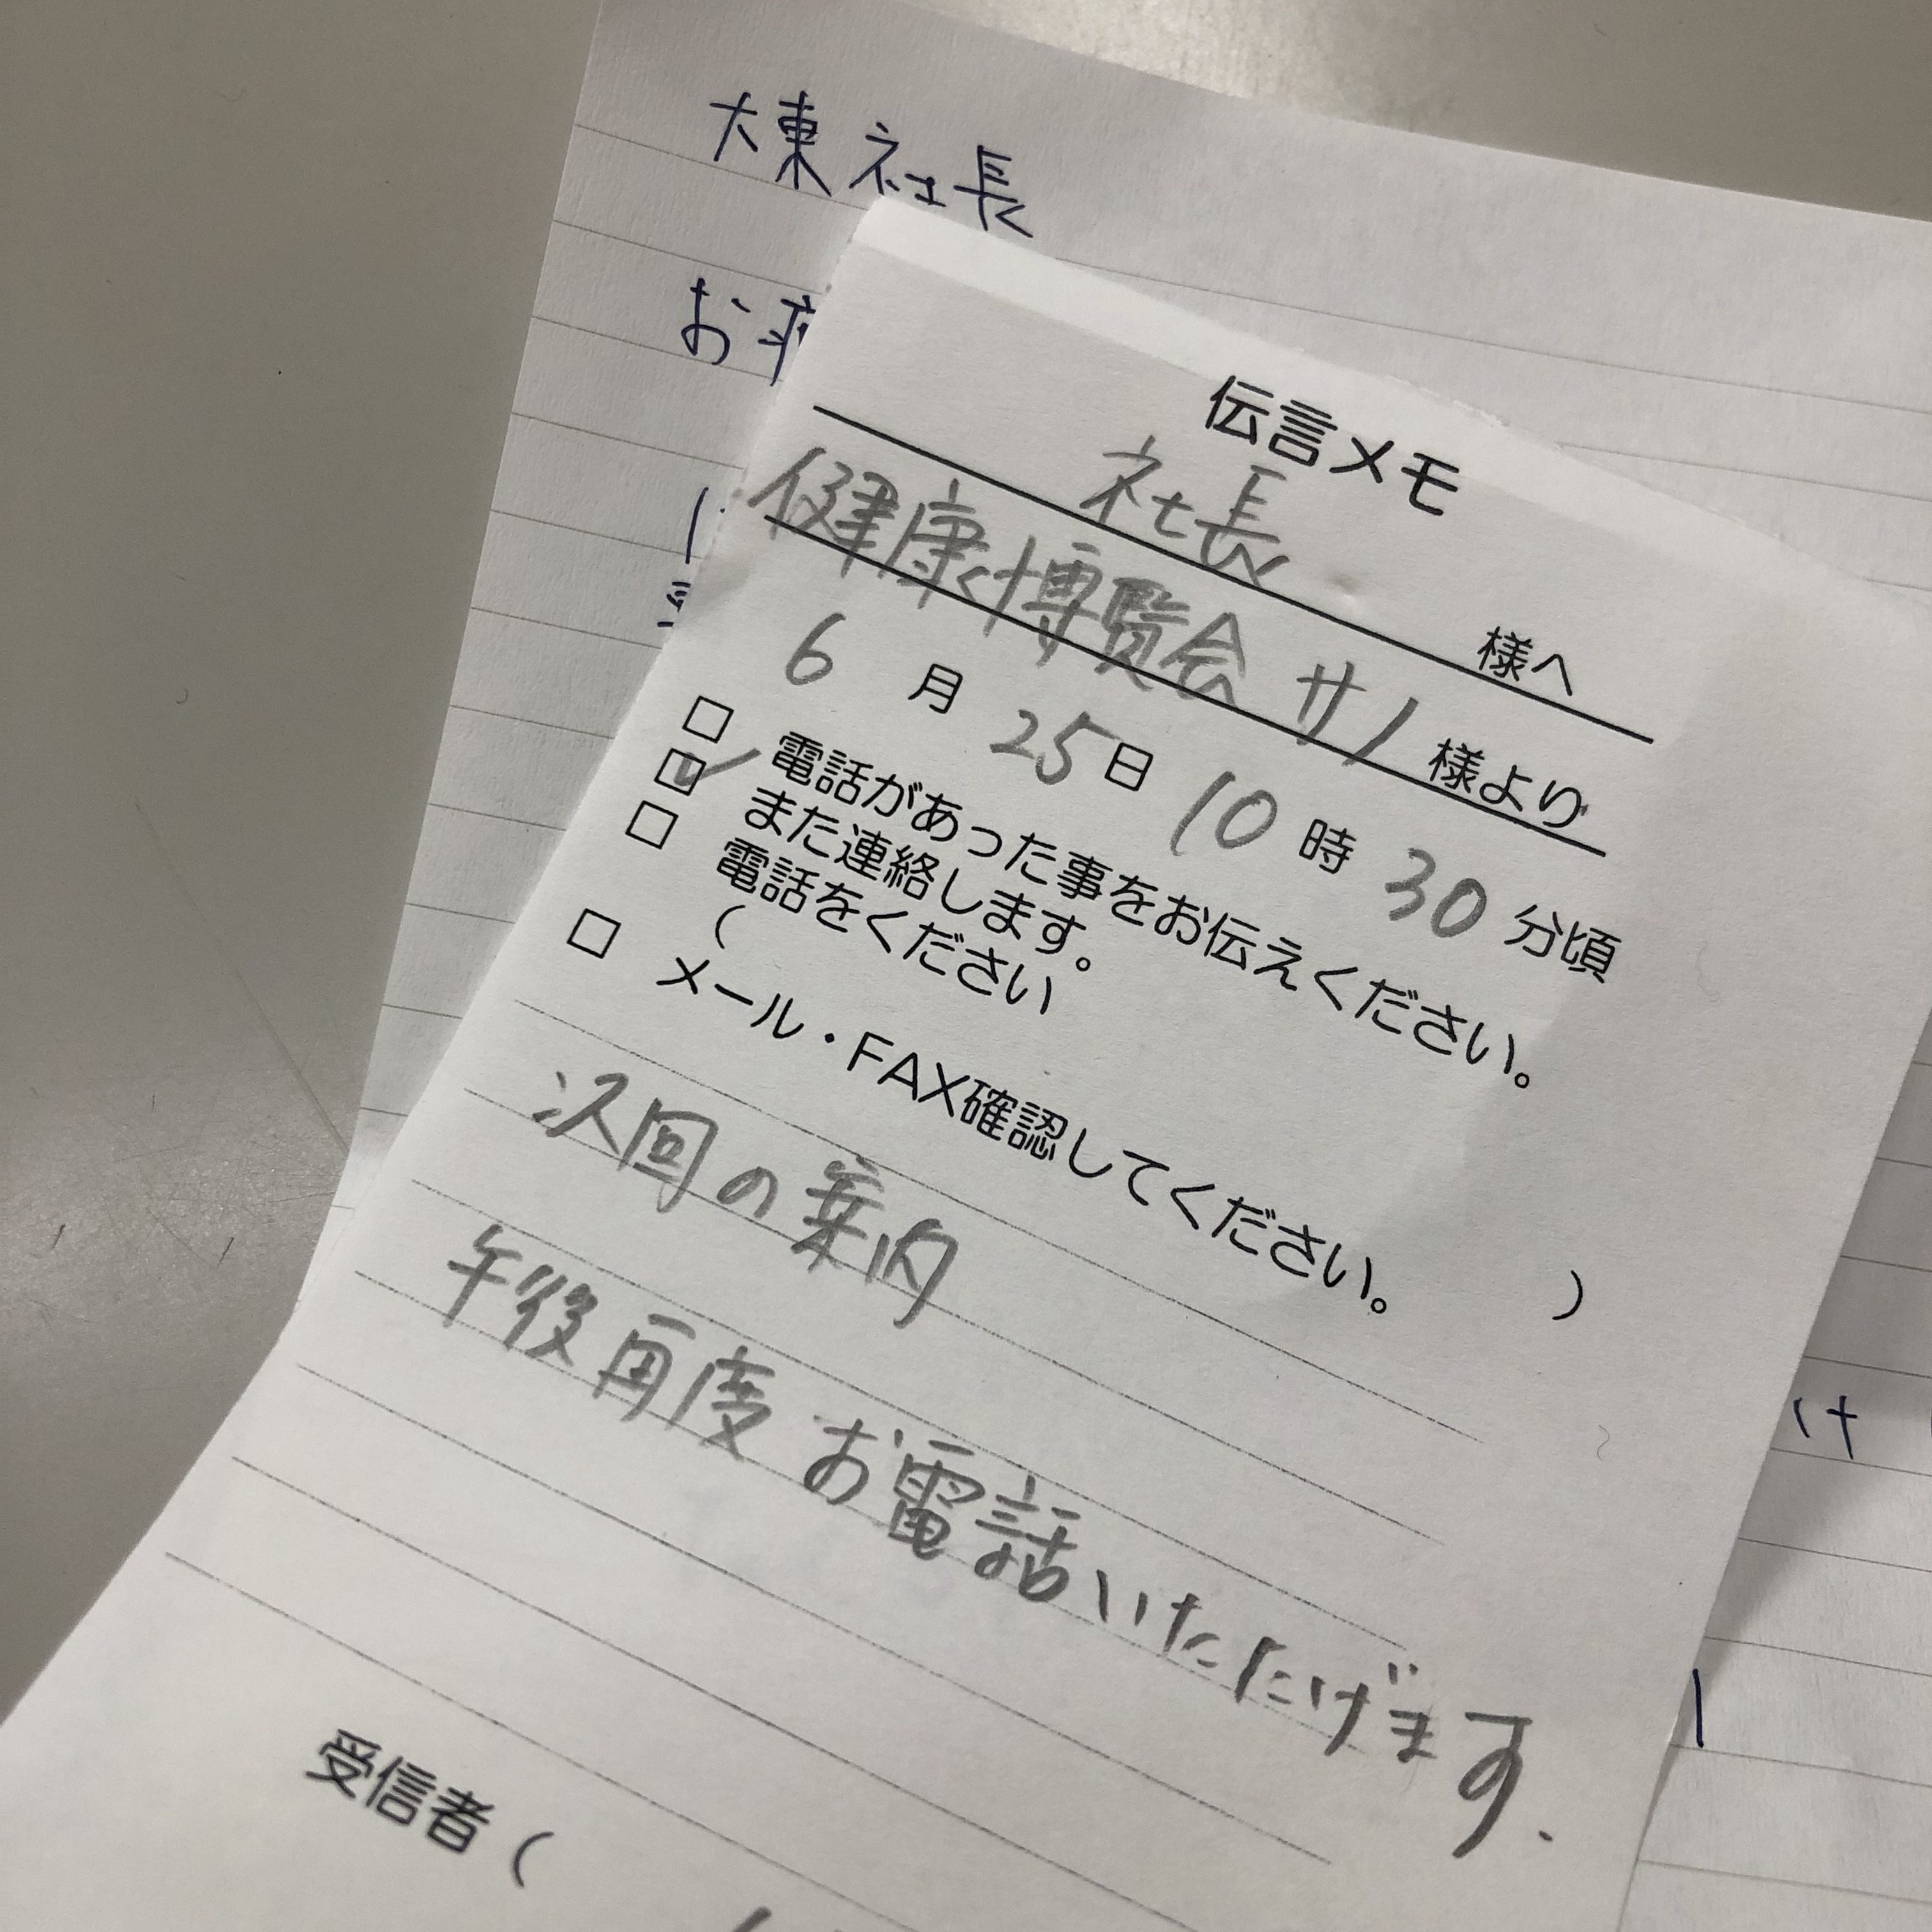 大東社長
お疲
伝言メモ
社長 様へ
健康博覧会 サノ 様より
6月25日10時30分頃
□ 電話があった事をお伝えください。
☑ また連絡します。
□ 電話をください
( )
□ メール・FAX確認してください。
次回の案内
午後再度お電話いただけます.
受信者(
け